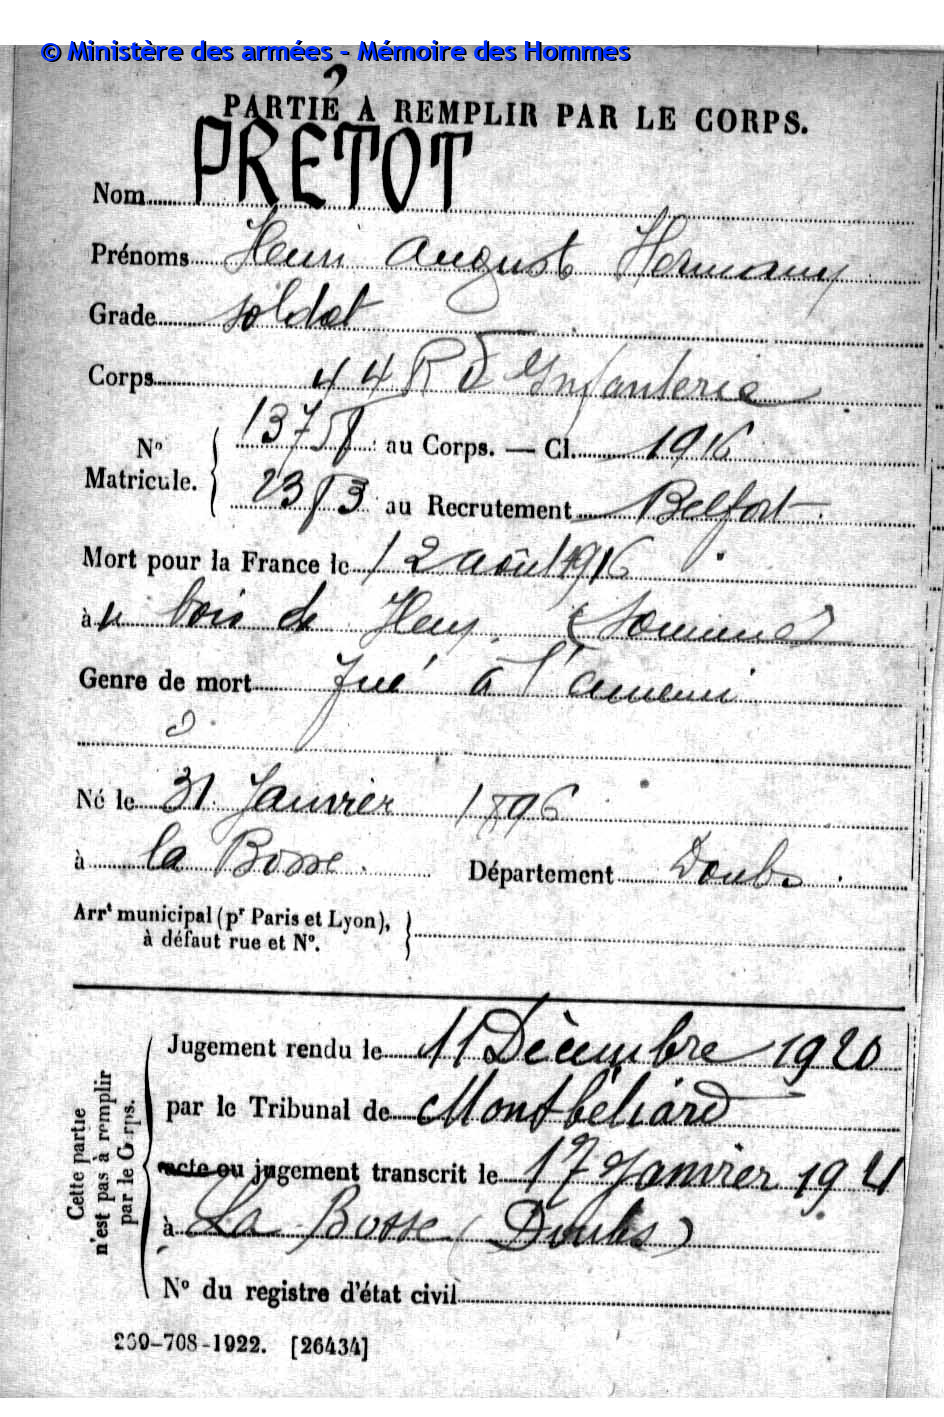 © Ministère des armées - Mémoire des Hommes
PARTIE A REMPLIR PAR LE CORPS.
Nom PRETOT
Prénoms Henri August Hermany
Grade soldat
Corps 44 R d'Infanterie
N° Matricule. 13758 au Corps. — Cl. 1916
2383 au Recrutement Belfort
Mort pour la France le 12 août 1916
à u bois de Hem (Somme)
Genre de mort Tué à l'ennemi
Né le 31 Janvier 1896
à la Bosse Département Doubs
Arr^t municipal (p^r Paris et Lyon),
à défaut rue et N°.
Cette partie n'est pas à remplir par le Corps.
Jugement rendu le 11 Décembre 1920
par le Tribunal de Montbéliard
acte ou jugement transcrit le 17 Janvier 1921
à La Bosse (Doubs)
N° du registre d'état civil
269-708-1922. [26434]